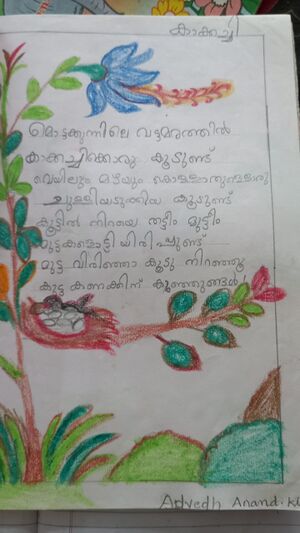 കാക്കച്ചി
മൊട്ടക്കുന്നിലെ വട്ടമരത്തിൻ
കാക്കച്ചിക്കൊരു കൂടുണ്ട്
വെയിലും മഴയും കൊള്ളാതുള്ളൊരു
ചുള്ളിയടുക്കിയ കൂടുണ്ട്
കൂട്ടിൽ നിറയെ തട്ടീം മുട്ടീം
മുട്ടകളൊട്ടി യിരിപ്പുണ്ട്
മുട്ട വിരിഞ്ഞാ കൂടു നിറഞ്ഞൂ
കൂട്ട കണക്കിന് കുഞ്ഞുങ്ങൾ
Advedh Anand.